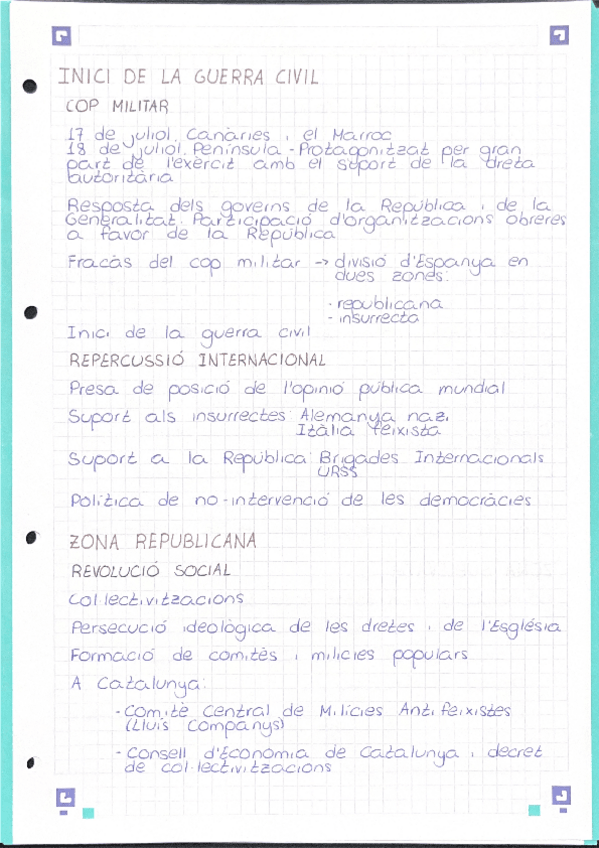 INICI DE LA GUERRA CIVIL
COP MILITAR
17 de juliol. Canàries i el Marroc
18 de juliol. Península - Protagonitzat per gran
part de l'exèrcit amb el suport de la dreta
autoritària
Resposta dels governs de la República i de la
Generalitat. Participació d'organitzacions obreres
a favor de la República
Fracàs del cop militar → divisió d'Espanya en
dues zones:
- republicana
- insurrecta
Inici de la guerra civil
REPERCUSSIÓ INTERNACIONAL
Presa de posició de l'opinió pública mundial
Suport als insurrectes: Alemanya nazi
Itàlia feixista
Suport a la República: Brigades Internacionals
URSS
Política de no-intervenció de les democràcies
ZONA REPUBLICANA
REVOLUCIÓ SOCIAL
Col·lectivitzacions
Persecució ideològica de les dretes i de l'Església
Formació de comitès i milícies populars
A Catalunya:
- Comitè Central de Milícies Antifeixistes
(Lluís Companys)
- Consell d'Economia de Catalunya i decret
de col·lectivitzacions